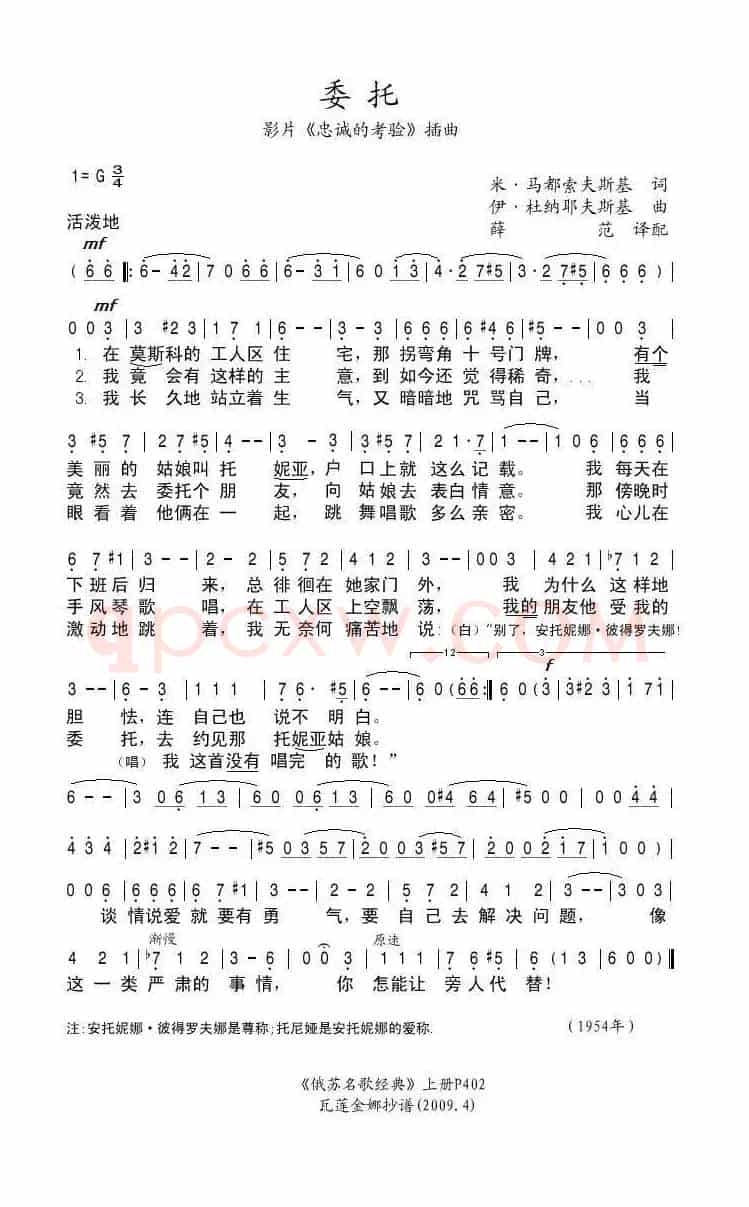 委托
影片《忠诚的考验》插曲
1=G 3/4
米·马都索夫斯基 词
伊·杜纳耶夫斯基 曲
薛 范 译配
活泼地
mf
( 6 6 ‖: 6 - 4 2 | 7 0 6 6 | 6 - 3 1 | 6 0 1 3 | 4 · 2 7 #5 | 3 · 2 7 #5 | 6 6 6 ) |
mf
0 0 3 | 3 #2 3 | 1 7 1 | 6 - - | 3 - 3 | 6 5 6 | 4 6 #4 | #5 - - | 0 0 3 |
1. 在 莫斯科的 工人区 住 宅，那 拐弯角 十 号门 牌， 有个
2. 我 竟 会有 这样的 主 意，到 如今还 觉 得稀 奇，... 我
3. 我 长 久地 站立着 生 气，又 暗暗地 咒 骂自 己， 当
3 #5 7 | 2 7 #5 | 4 - - | 3 - 3 | 7 6 #5 | 2 1 · 7 | 1 - - | 1 0 6 | 6 6 6 |
美 丽的 姑娘叫 托 妮亚，户 口上就 这么 记 载。 我 每天在
竟 然去 委托个 朋 友，向 姑娘去 表白 情 意。 那 傍晚时
眼 看着 他俩在 一 起，跳 舞唱歌 多么 亲 密。 我 心儿在
6 7 #1 | 3 - - | 2 - 2 | 5 7 2 | 4 1 2 | 3 - - | 0 0 3 | 4 2 1 | b7 1 2 |
下 班后 归 来，总 徘徊在 她家门 外， 我 为什么 这样地
手 风琴 歌 唱，在 工人区 上空飘 荡， 我的 朋友他 受我的
激 动地 跳 着，我 无奈何 痛苦地 说：（白）“别了，安托妮娜·彼得罗夫娜！
12 3
f
3 - - | 6 - 3 | 1 1 1 | 7 6 · #5 | 6 - - | 6 0 ( 6 6 :‖ 6 0 ( 3 | 3 #2 3 | 1 7 1 |
胆 怯，连 自己也 说不 明 白。
委 托，去 约见那 托妮亚 姑 娘。
（唱）我 这首没有 唱完 的 歌！”
6 - - | 3 0 6 1 3 | 6 0 0 | 6 0 6 1 3 | 6 0 0 #4 | 6 - #4 | #5 0 0 | 0 0 4 4 |
4 3 4 | 2 #1 2 | 7 - - | #5 0 3 5 7 | 2 0 0 | 2 0 3 #5 7 | 2 0 0 | 2 0 0 2 1 7 | 1 0 0 ) |
0 0 3 | 6 6 6 | 6 7 #1 | 3 - - | 2 - 2 | 5 7 2 | 4 1 2 | 3 - - | 3 0 3 |
谈 情说爱 就 要有 勇 气，要 自 己去 解 决问 题， 像
渐慢 原速
4 2 1 | b7 1 2 | 3 - - | 6 - - | 0 0 3 | 1 1 1 | 7 6 #5 | 6 - - | 6 0 0 ‖
这 一 类 严 肃的 事 情， 你 怎能让 旁人代 替！
注：安托妮娜·彼得罗夫娜是尊称；托尼娅是安托妮娜的爱称.
（1954年）
《俄苏名歌经典》上册P402
瓦莲金娜抄谱(2009.4)
qpcxw.com